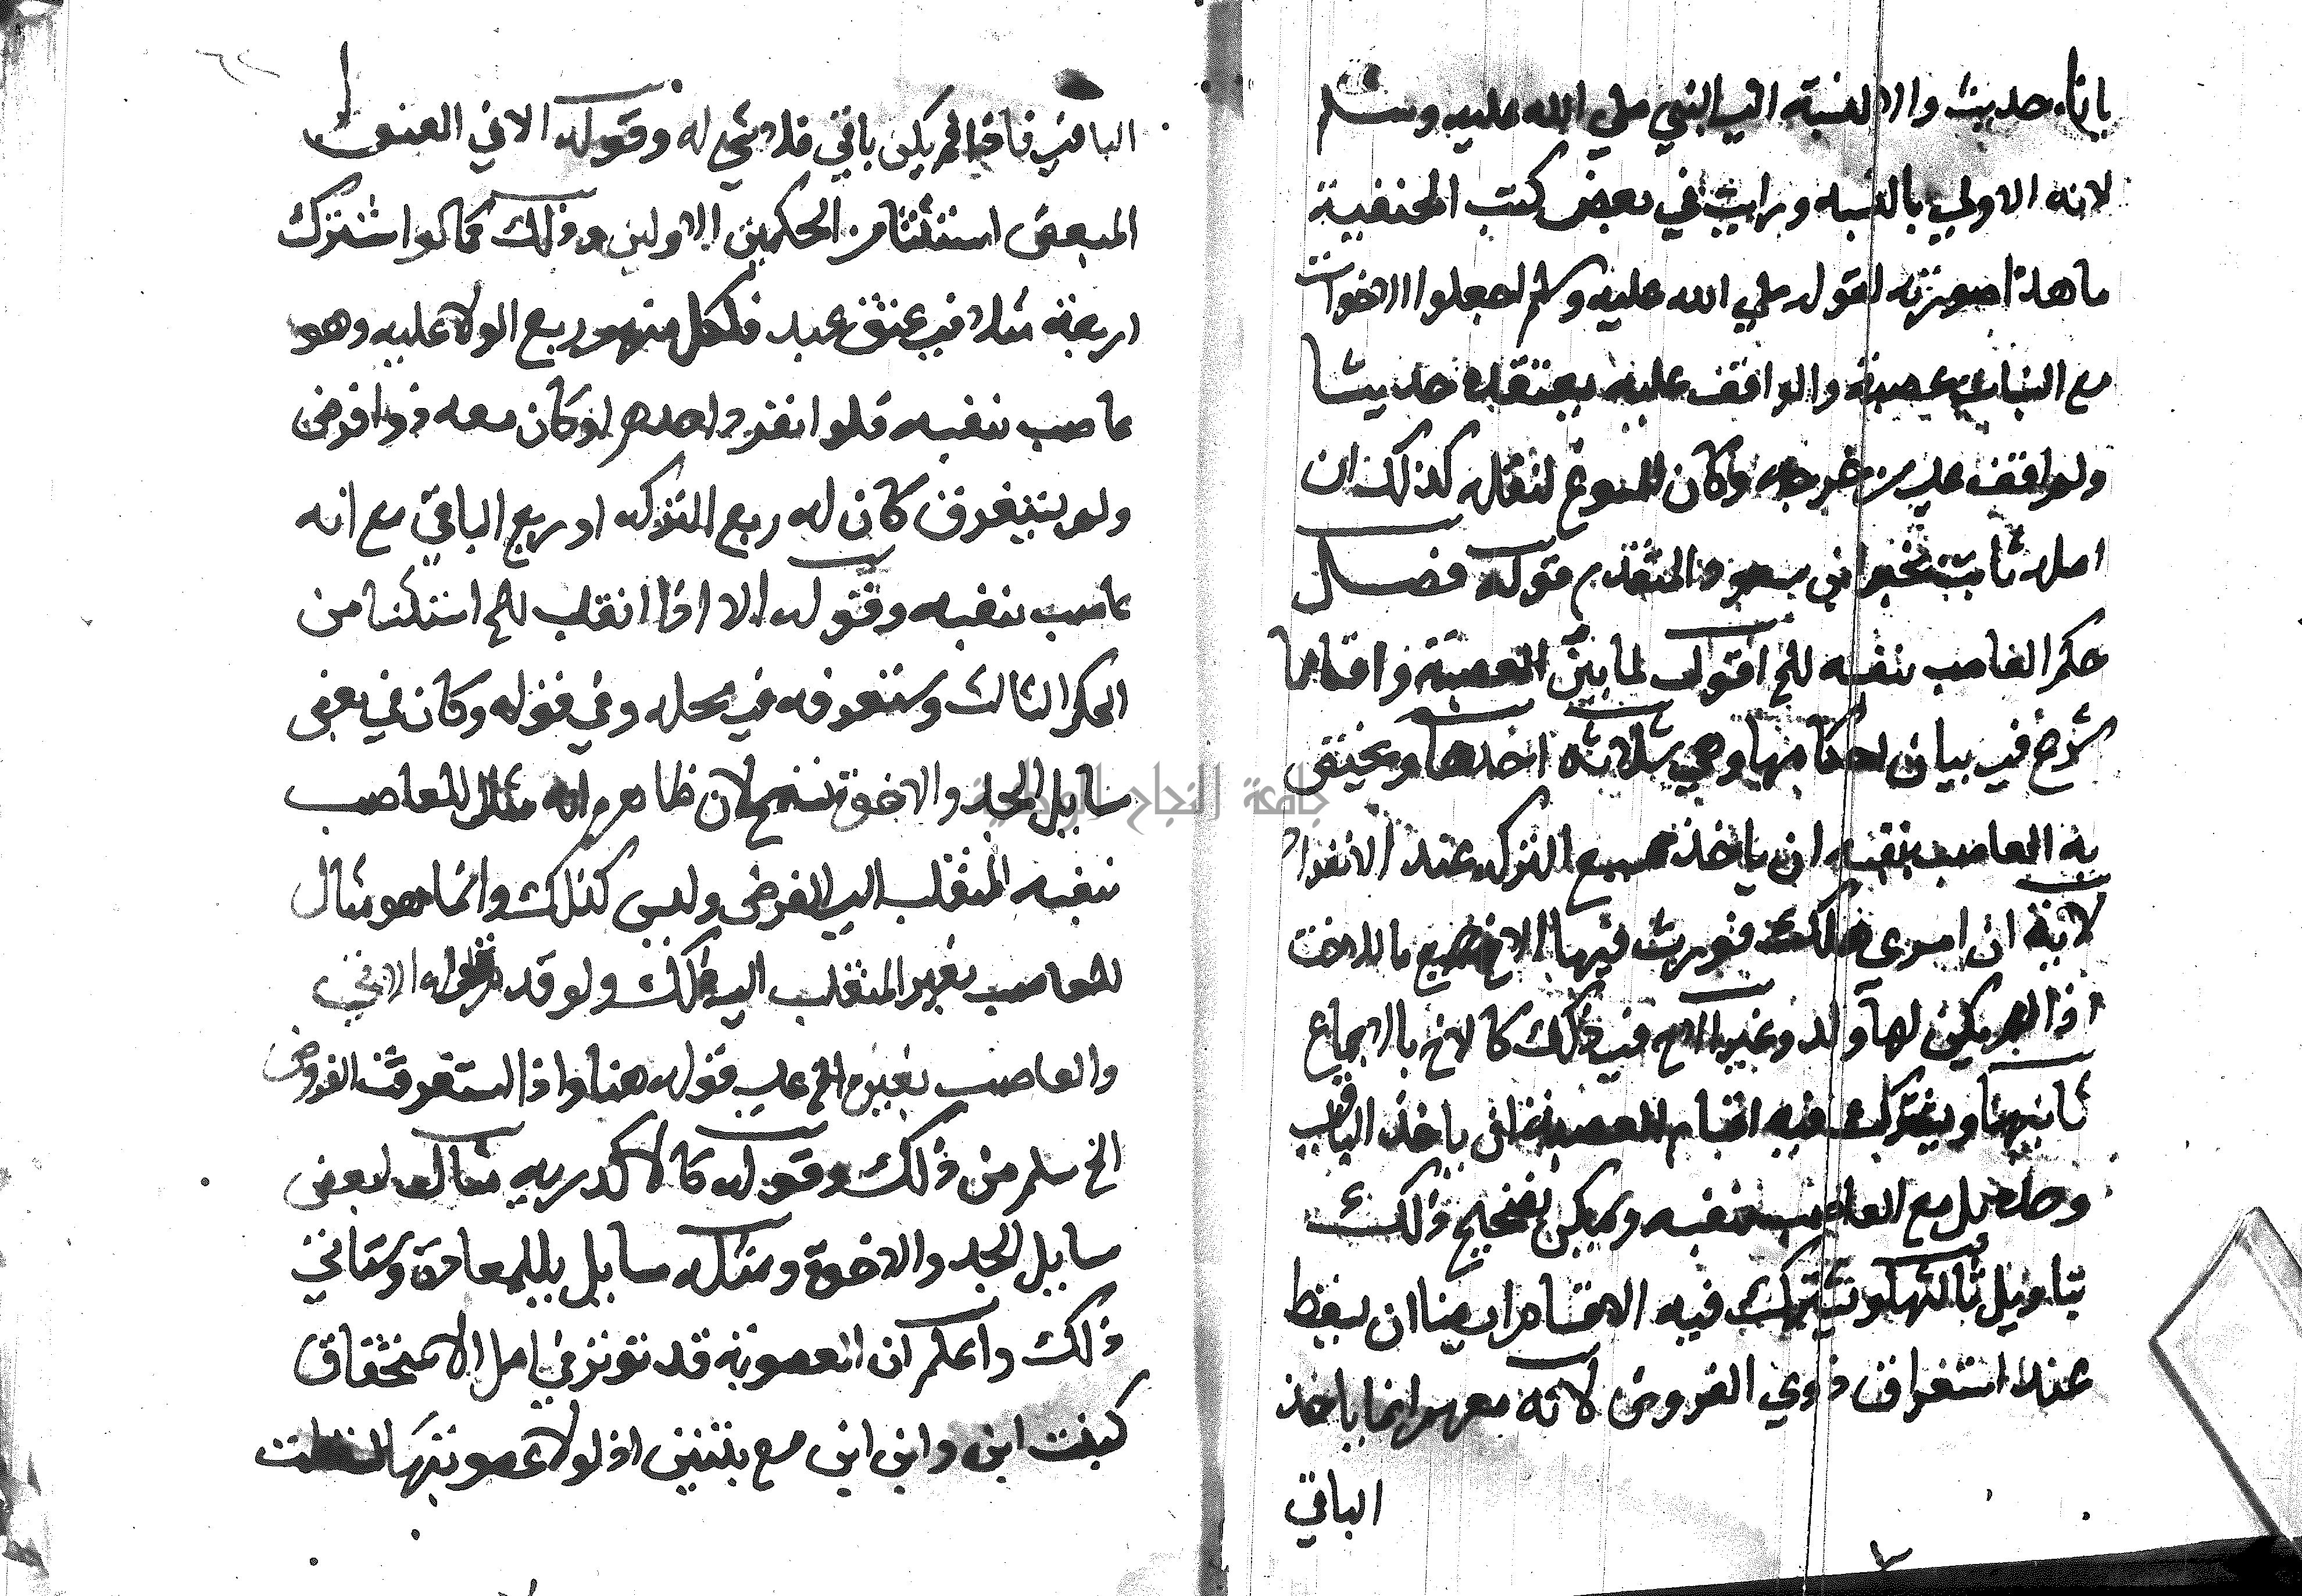 بانه حديث والا لنسبة الي النبي صلي الله عليه وسلم
لانه الاولي بالنسبه ورايت في بعض كتب الحنفية
ما هذا صورته لقوله صلي الله عليه وسلم اجعلوا الاخوات
مع البنات عصبة والواقف عليه يعتقده حديثا
ولم اقف علي من خرجه وكان المسوغ لنقله كذلك ان
اصله ثابت بخبر ابن مسعود المتقدم قوله فصل
حكم العاصب بنفسه الخ اقول لما بين العصبة واقسامها
شرع في بيان احكامها وهي ثلاثه احدها ويختص
به العاصب بنفسه ان ياخذ جميع التركه عند الانفراد
لاية ان امرئ هلك فورث فيها الاخ جميع ما للاخت
اذا لم يكن لها ولد وغير الاخ في ذلك كالاخ بالاجماع
ثانيها ويشترك فيه اقسام العصبة ان ياخذ الباقي
بل مع العاصب بنفسه ويمكن تصحيح ذلك
بتاويل ثالثها وتشترك فيه الاقسام ايضا ان يسقط
عند استغراق ذوي الفروض لانه معهم انما ياخذ
الباقي
الباقي فاذا لم يكن باقي فلا شي له وقوله الا في العتق
المبعض استثنا من الحكمين الاولين وذلك كما لو اشترك
اربعة مثلا في عتق عبد فلكل منهم ربع الولا عليه وهو
عاصب بنفسه فلو انفرد احدهم او كان معه ذو افرض
ولم يستغرق كان له ربع التركه او ربع الباقي مع انه
عاصب بنفسه وقوله الا اذا انقلب الخ استثنا من
الحكم الثالث وستعرفه في محله وفي قوله وكان في بعض
مسايل الجد والاخوة تسمح لان ظاهره انه مثال للعاصب
بنفسه المنقلب الي الفرض وليس كذلك وانما هو مثال
للعاصب بغير المنقلب الي ذلك ولو قدم قوله الاتي
والعاصب بغيره الخ علي قوله هنا واذا استغرقت الفروض
الخ سلم من ذلك وقوله كالاكدريه مثال لبعض
مسايل الجد والاخوة ومثله مسايل المعادة وستاتي
ذلك واعلم ان العصوبة قد تؤثر في اصل الاستحقاق
كبنت ابن وابن ابن مع بنتين اذ لولا عصوبتها لسقطت
جامعة النجاح الوطنية